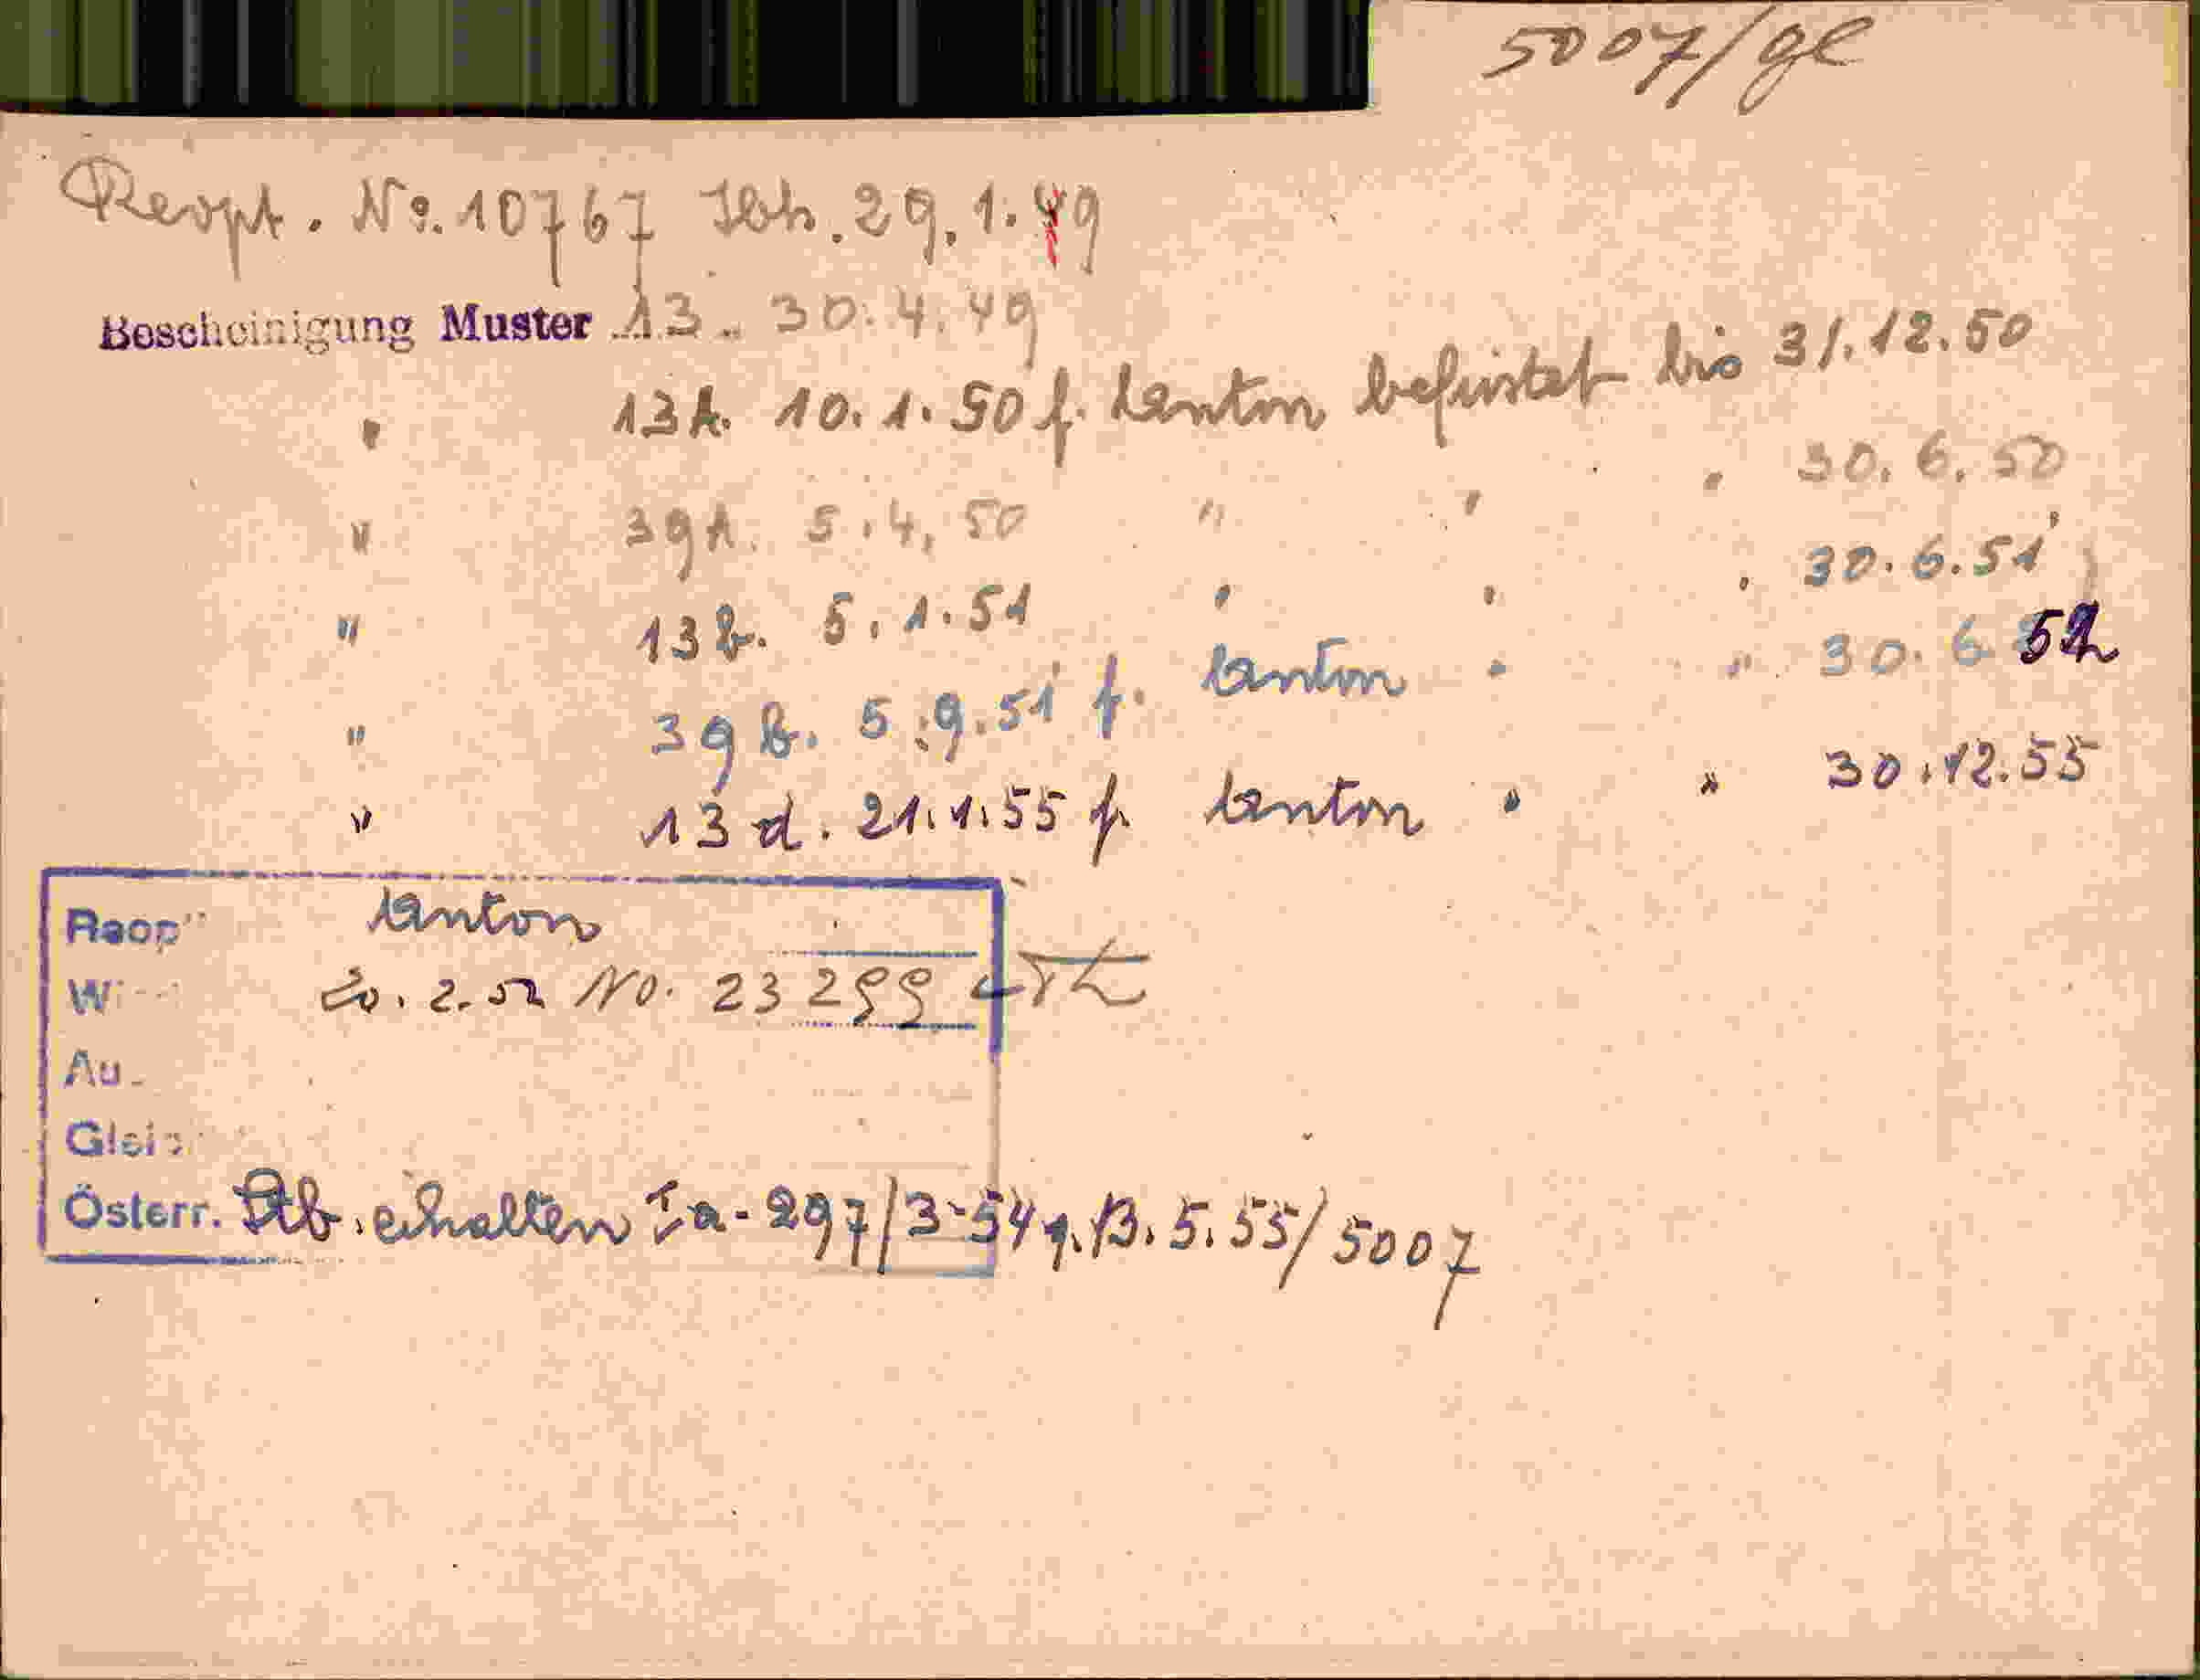 5007/gl
Reopt. No. 10767 Ibk. 29.1.49
Bescheinigung Muster 13. 30.4.49
" 13A. 10.1.50 f. Kanton befristet bis 31.12.50
" 39A. 5.4.50 " " " 30.6.50
" 13b. 5.1.51 " " " 30.6.51
" 39b. 5.9.51 f. Kanton " " 30.6 52
" 13d. 21.1.55 f. Kanton " " 30.12.55
Reop Kanton
W 20.2.52 No. 23299
Au
Glei
Österr. Stb. erhalten Ia-297/3-54 13.5.55/5007